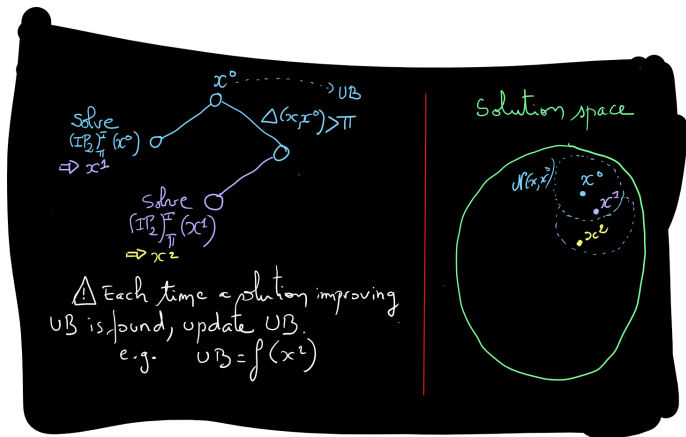 x⁰
UB
Solve
(IP₂)ᴵ_π(x⁰)
⇒ x¹
Δ(x,x⁰)>π
Solve
(IP₂)ᴵ_π(x¹)
⇒ x²
⚠ Each time a solution improving
UB is found, update UB.
e.g. UB = f(x²)
Solution space
N(x,x⁰)
x⁰
x¹
x²